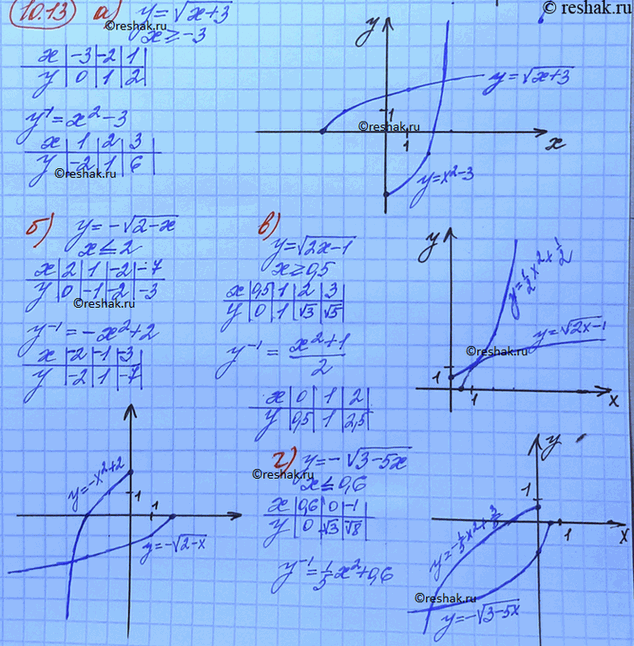 10.13 а) y = √(x+3)
© reshak.ru
x ≥ -3
x | -3 | -2 | 1
y | 0 | 1 | 2
y⁻¹ = x² - 3
x | 1 | 2 | 3
y | -2 | 1 | 6
©reshak.ru
y
y = √(x+3)
1
1
x
y = x² - 3
б) y = -√(2-x)
x ≤ 2
x | 2 | 1 | -2 | -7
y | 0 | -1 | -2 | -3
y⁻¹ = -x² + 2
x | -2 | -1 | -3
y | -2 | 1 | -7
y = -x² + 2
1
1
y = -√(2-x)
в)
y = √(2x-1)
x ≥ 0,5
x | 0,5 | 1 | 2 | 3
y | 0 | 1 | √3 | √5
y⁻¹ = (x²+1)/2
x | 0 | 1 | 2
y | 0,5 | 1 | 2,5
y
y = 1/2 x² + 1/2
y = √(2x-1)
1
1
x
г) y = -√(3-5x)
x ≤ 0,6
x | 0,6 | 0 | -1
y | 0 | √3 | √8
y⁻¹ = 1/5 x² + 0,6
y
1
1
x
y = -1/5 x² + 3/5
y = -√(3-5x)
©reshak.ru
©reshak.ru
©reshak.ru
©reshak.ru
©reshak.ru
©reshak.ru